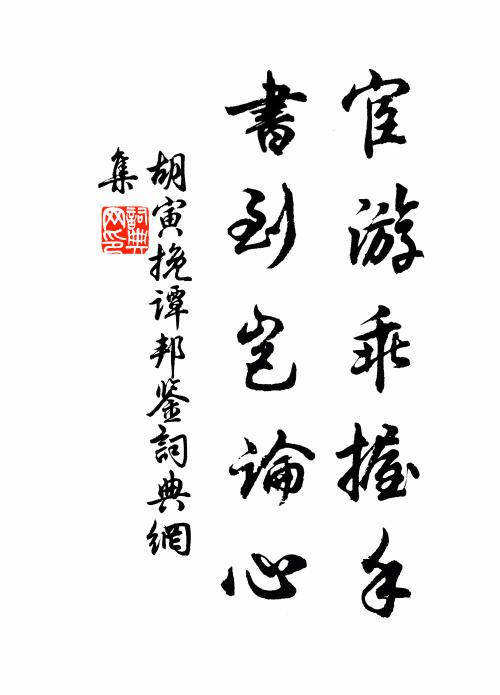 宦游乖握手
書到豈論心
胡寅挽谭邦鉴詞典網
集
詞典
网印